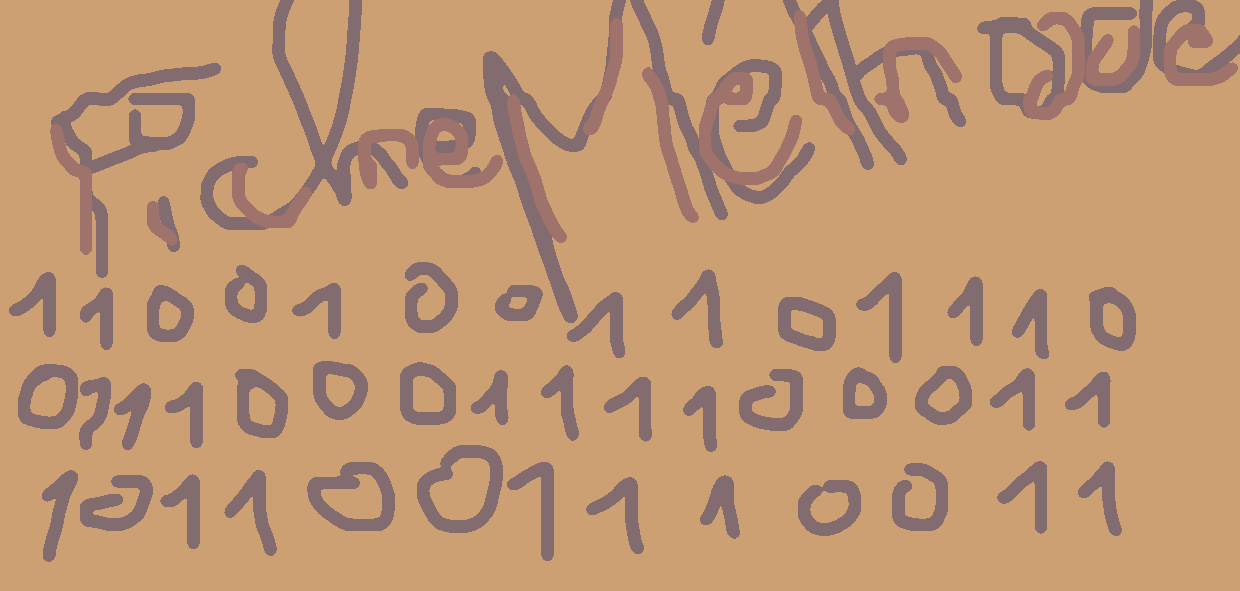 Fiche Méthode
11001001101110
0111000111100011
1011001110011